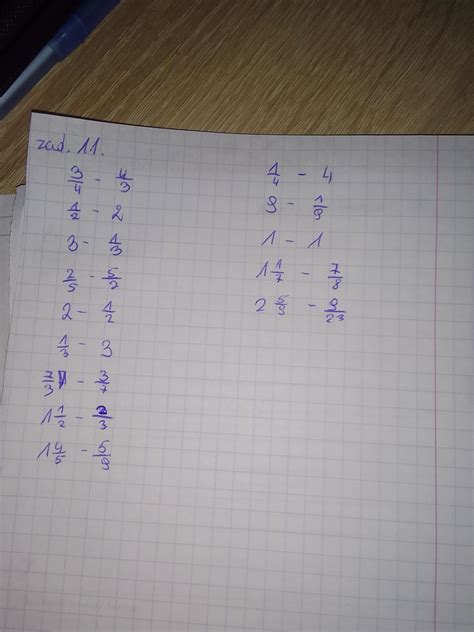 zad. 11.
3/4 - 4/3
1/2 - 2
3 - 1/3
2/5 - 5/2
2 - 1/2
1/3 - 3
7/3 - 3/7
1 1/2 - 2/3
1 4/5 - 5/9
1/4 - 4
9 - 1/9
1 - 1
1 1/7 - 7/8
2 5/9 - 9/23